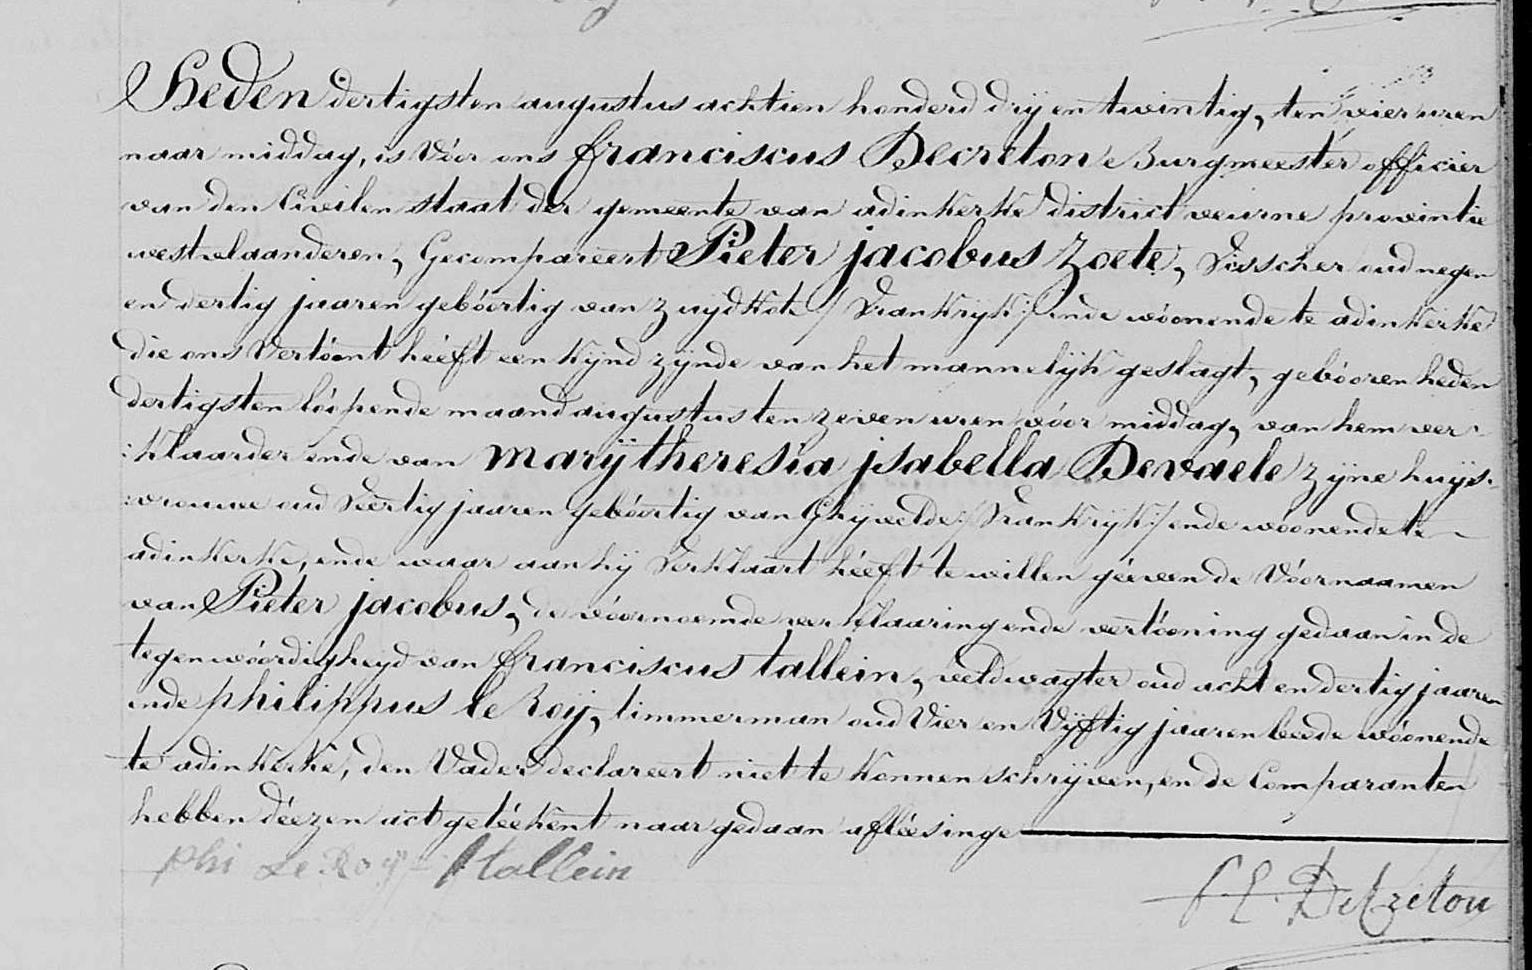 Heden dertigsten augustus achtien honderd drÿ en twintig, ten vier uren
naar middag, is vóór ons franciscus Decreton Burgmeester officier
van den Civilen staat der gemeente van adinkerke district veurne provintie
westvlaanderen, Gecompareert Pieter jacobus Zoete, visscher oud negen
en dertig jaaren gebóórtig van zuydkote /: vrankryk :/ ende wóónende te adinkerke
die ons vertóónt hééft een kÿnd zÿnde van het mannelÿk geslagt, gebóóren heden
dertigsten lóópende maand augustus ten zeven uren vóór middag, van hem ver-
:klaarder ende van marÿ theresia jsabella Devaele zÿne huÿs-
:vrouwe oud veertig jaaren gebóórtig van Ghÿvelde /: vrankrÿk :/ ende wóónende te
adinkerke, ende waar aan hÿ verklaart hééft te willen gééven de vóórnaamen
van Pieter jacobus, de vóórnoemde verklaaring ende vertóóning gedaan in de
tegenwóórdigheyd van franciscus tallein, veldwagter oud acht en dertig jaaren
ende philippus le Roÿ, timmerman oud vier en vÿftig jaaren beede wóónende
te adinkerke, den vader declareert niet te konnen schrÿven, en de Comparanten
hebben déézen act getéékent naar gedaan aflésinge
phi Le Roÿ ftallein
f. C. DeCreton